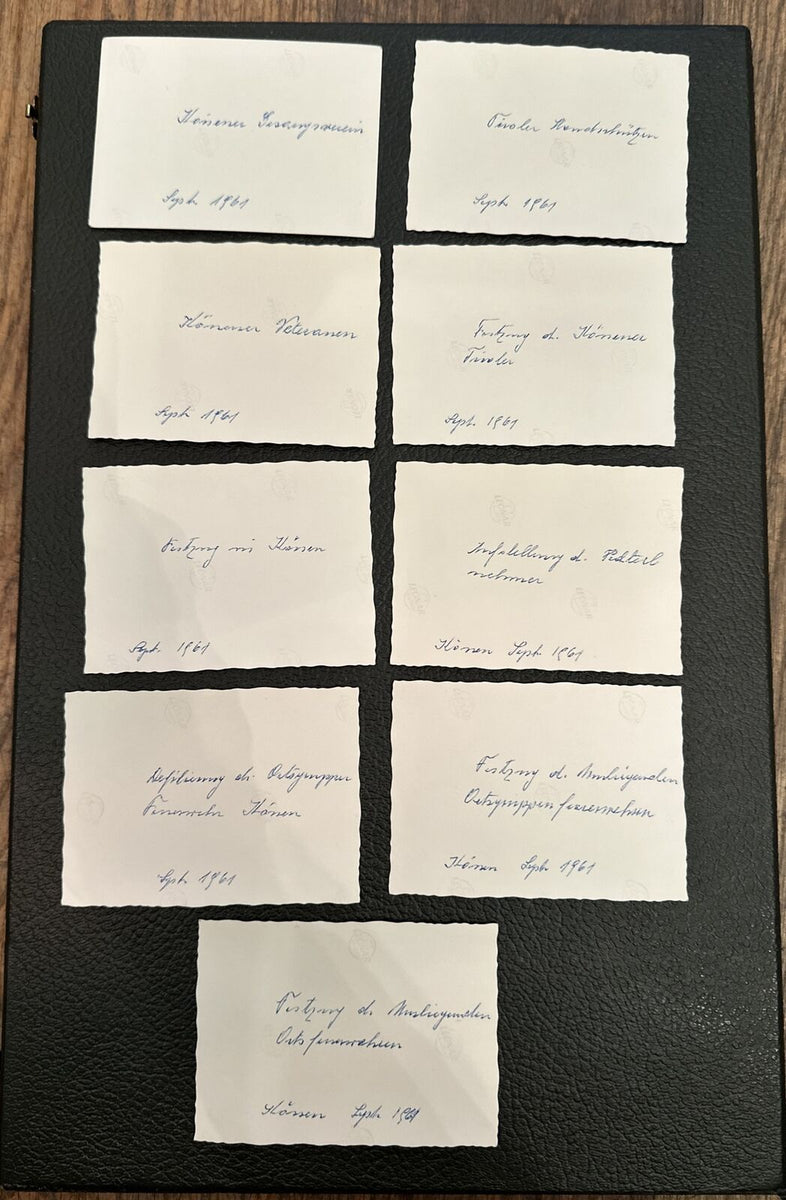 Kössener Gesangsverein
Sept. 1961
Tiroler Standschützen
Sept. 1961
Kössener Veteranen
Sept. 1961
Festzug d. Kössener
Tiroler
Sept. 1961
Festzug in Kössen
Sept. 1961
Aufstellung d. Festteil
nehmer
Kössen Sept. 1961
Defilierung d. Ortsgruppen
Feuerwehr Kössen
Sept. 1961
Festzug d. Umliegenden
Ortsgruppenfeuerwehren
Kössen Sept. 1961
Festzug d. Umliegenden
Ortsfeuerwehren
Kössen Sept. 1961